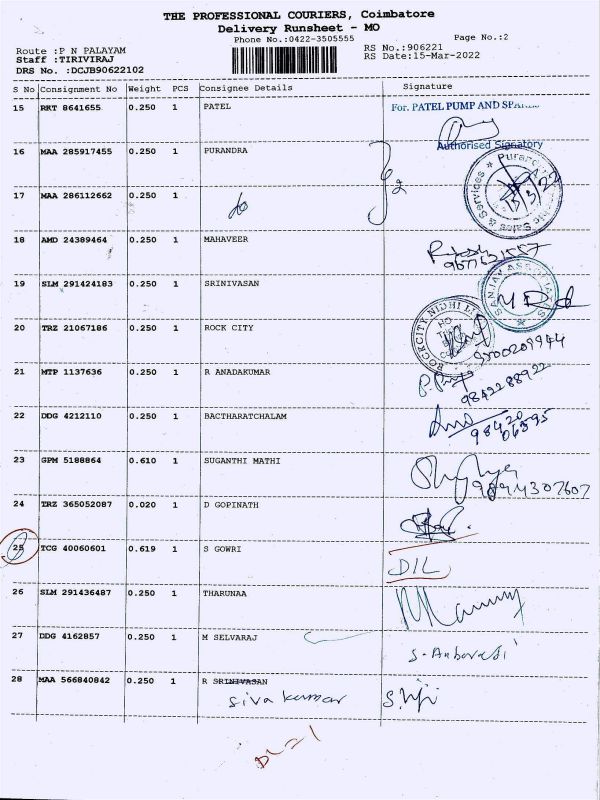 THE PROFESSIONAL COURIERS, Coimbatore
Delivery Runsheet - MO
Phone No.:0422-3505555 Page No.:2
Route :P N PALAYAM RS No.:906221
Staff :TIRIVIRAJ RS Date:15-Mar-2022
DRS No. :DCJB90622102
S No Consignment No Weight PCS Consignee Details Signature
15 RKT 8641655 0.250 1 PATEL For. PATEL PUMP AND
Authorised Signatory
16 MAA 285917455 0.250 1 PURANDRA
17 MAA 286112662 0.250 1 do
18 AMD 24389464 0.250 1 MAHAVEER
19 SLM 291424183 0.250 1 SRINIVASAN
20 TRZ 21067186 0.250 1 ROCK CITY ROCKCITY NIDHI
21 MTP 1137636 0.250 1 R ANADAKUMAR
9842288922
22 DDG 4212110 0.250 1 BACTHARATCHALAM
98420
06595
23 GPM 5188864 0.610 1 SUGANTHI MATHI
9894307607
24 TRZ 365052087 0.020 1 D GOPINATH
25 TCG 40060601 0.619 1 S GOWRI DIL
26 SLM 291436487 0.250 1 THARUNAA
27 DDG 4162857 0.250 1 M SELVARAJ
28 MAA 566840842 0.250 1 R SRINIVASAN
Siva kumar